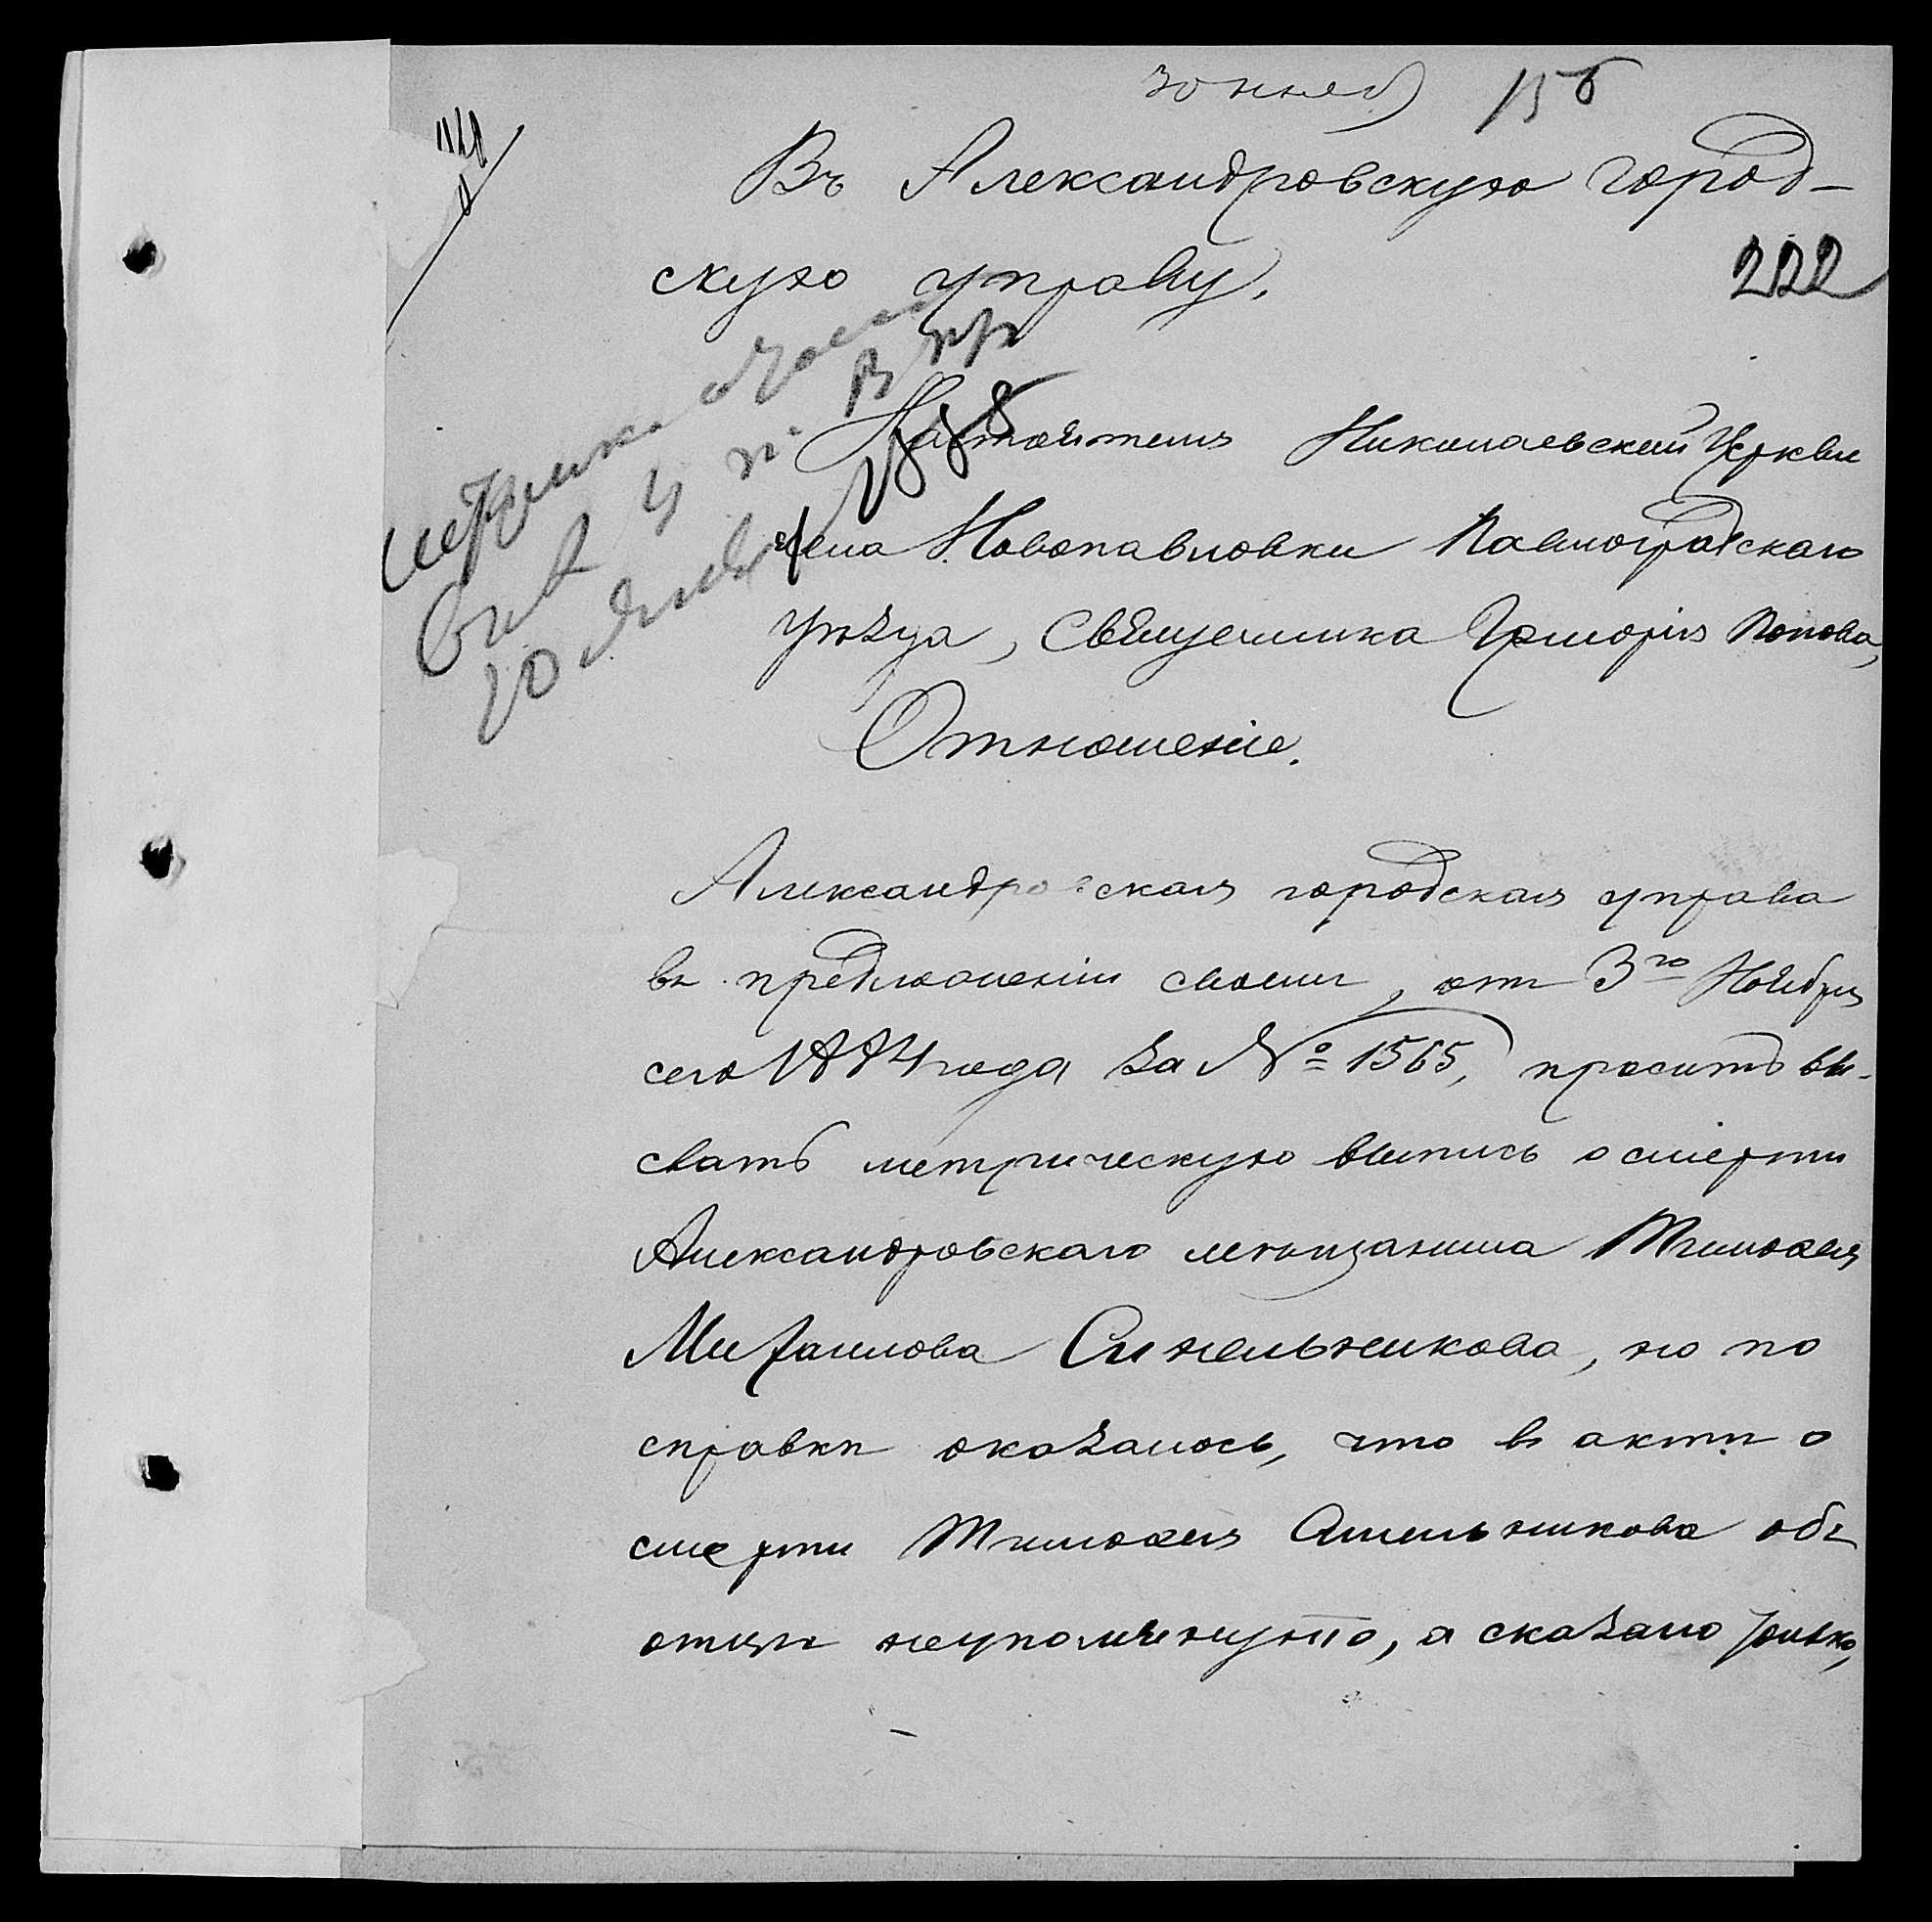 156
Въ Александровскую город-
скую управу.
222
Настоятеля Николаевской Церкви
села Новопавловки Павлоградскаго
уѣзда, Священника Григорія Попова,
Отношеніе.
Александровская городская управа
въ предложеніи своемъ, отъ 3го Ноября
сего 1884 года за № 1565, проситъ вы-
слать метрическую выпись о смерти
Александровскаго мѣщанина Тимофея
Михайлова Синельникова, но по
справкѣ оказалось, что въ актѣ о
смерти Тимофея Синельникова объ
отцѣ неупомянуто, а сказано только,